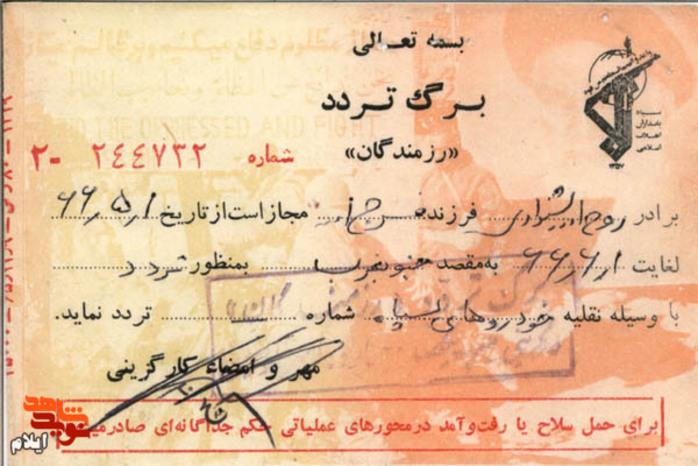 بسمه تعالی
برگ تردد
«رزمندگان»
شماره ۲۴۴۷۳۲ -۲
سپاه
پاسداران
انقلاب
اسلامی
۱۳۵۷
برادر روح اله شنبواری فرزند فرج اله مجاز است از تاریخ ۶۶/۵/۱
لغایت ۶۶/۶/۱ به مقصد جنوب غرب بمنظور تردد
با وسیله نقلیه خودروهای سپاه شماره تردد نماید.
مهر و امضاء کارگزینی
برای حمل سلاح یا رفت و آمد در محورهای عملیاتی حکم جداگانه‌ای صادر
شاهد
نوید
ایلام
AND THE OPPRESSED AND FIGHT